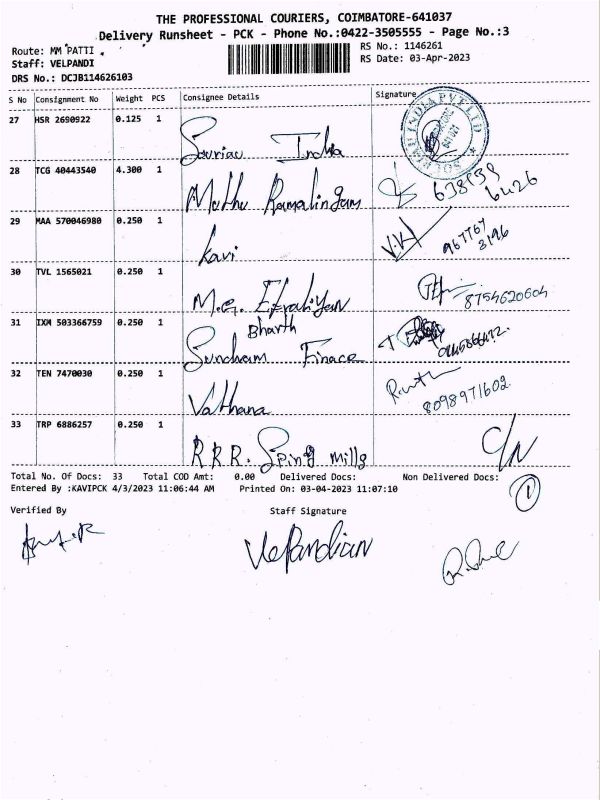 THE PROFESSIONAL COURIERS, COIMBATORE-641037
Delivery Runsheet - PCK - Phone No.:0422-3505555 - Page No.:3
Route: MM PATTI
RS No.: 1146261
Staff: VELPANDI
RS Date: 03-Apr-2023
DRS No.: DCJB114626103
S No Consignment No Weight PCS Consignee Details Signature
27 HSR 2690922 0.125 1
India
28 TCG 40443540 4.300 1
Muthu Ramalingam
29 MAA 570046980 0.250 1
Kavi V.K
30 TVL 1565021 0.250 1
M.G. 8754620604
31 IXM 503366759 0.250 1
Bharth
Sundram Finace
32 TEN 7470030 0.250 1
Vathana 8098971602
33 TRP 6886257 0.250 1
R R R. Sping mills C/N
Total No. Of Docs: 33 Total COD Amt: 0.00 Delivered Docs: Non Delivered Docs: 1
Entered By :KAVIPCK 4/3/2023 11:06:44 AM Printed On: 03-04-2023 11:07:10
Verified By Staff Signature
VelPandian